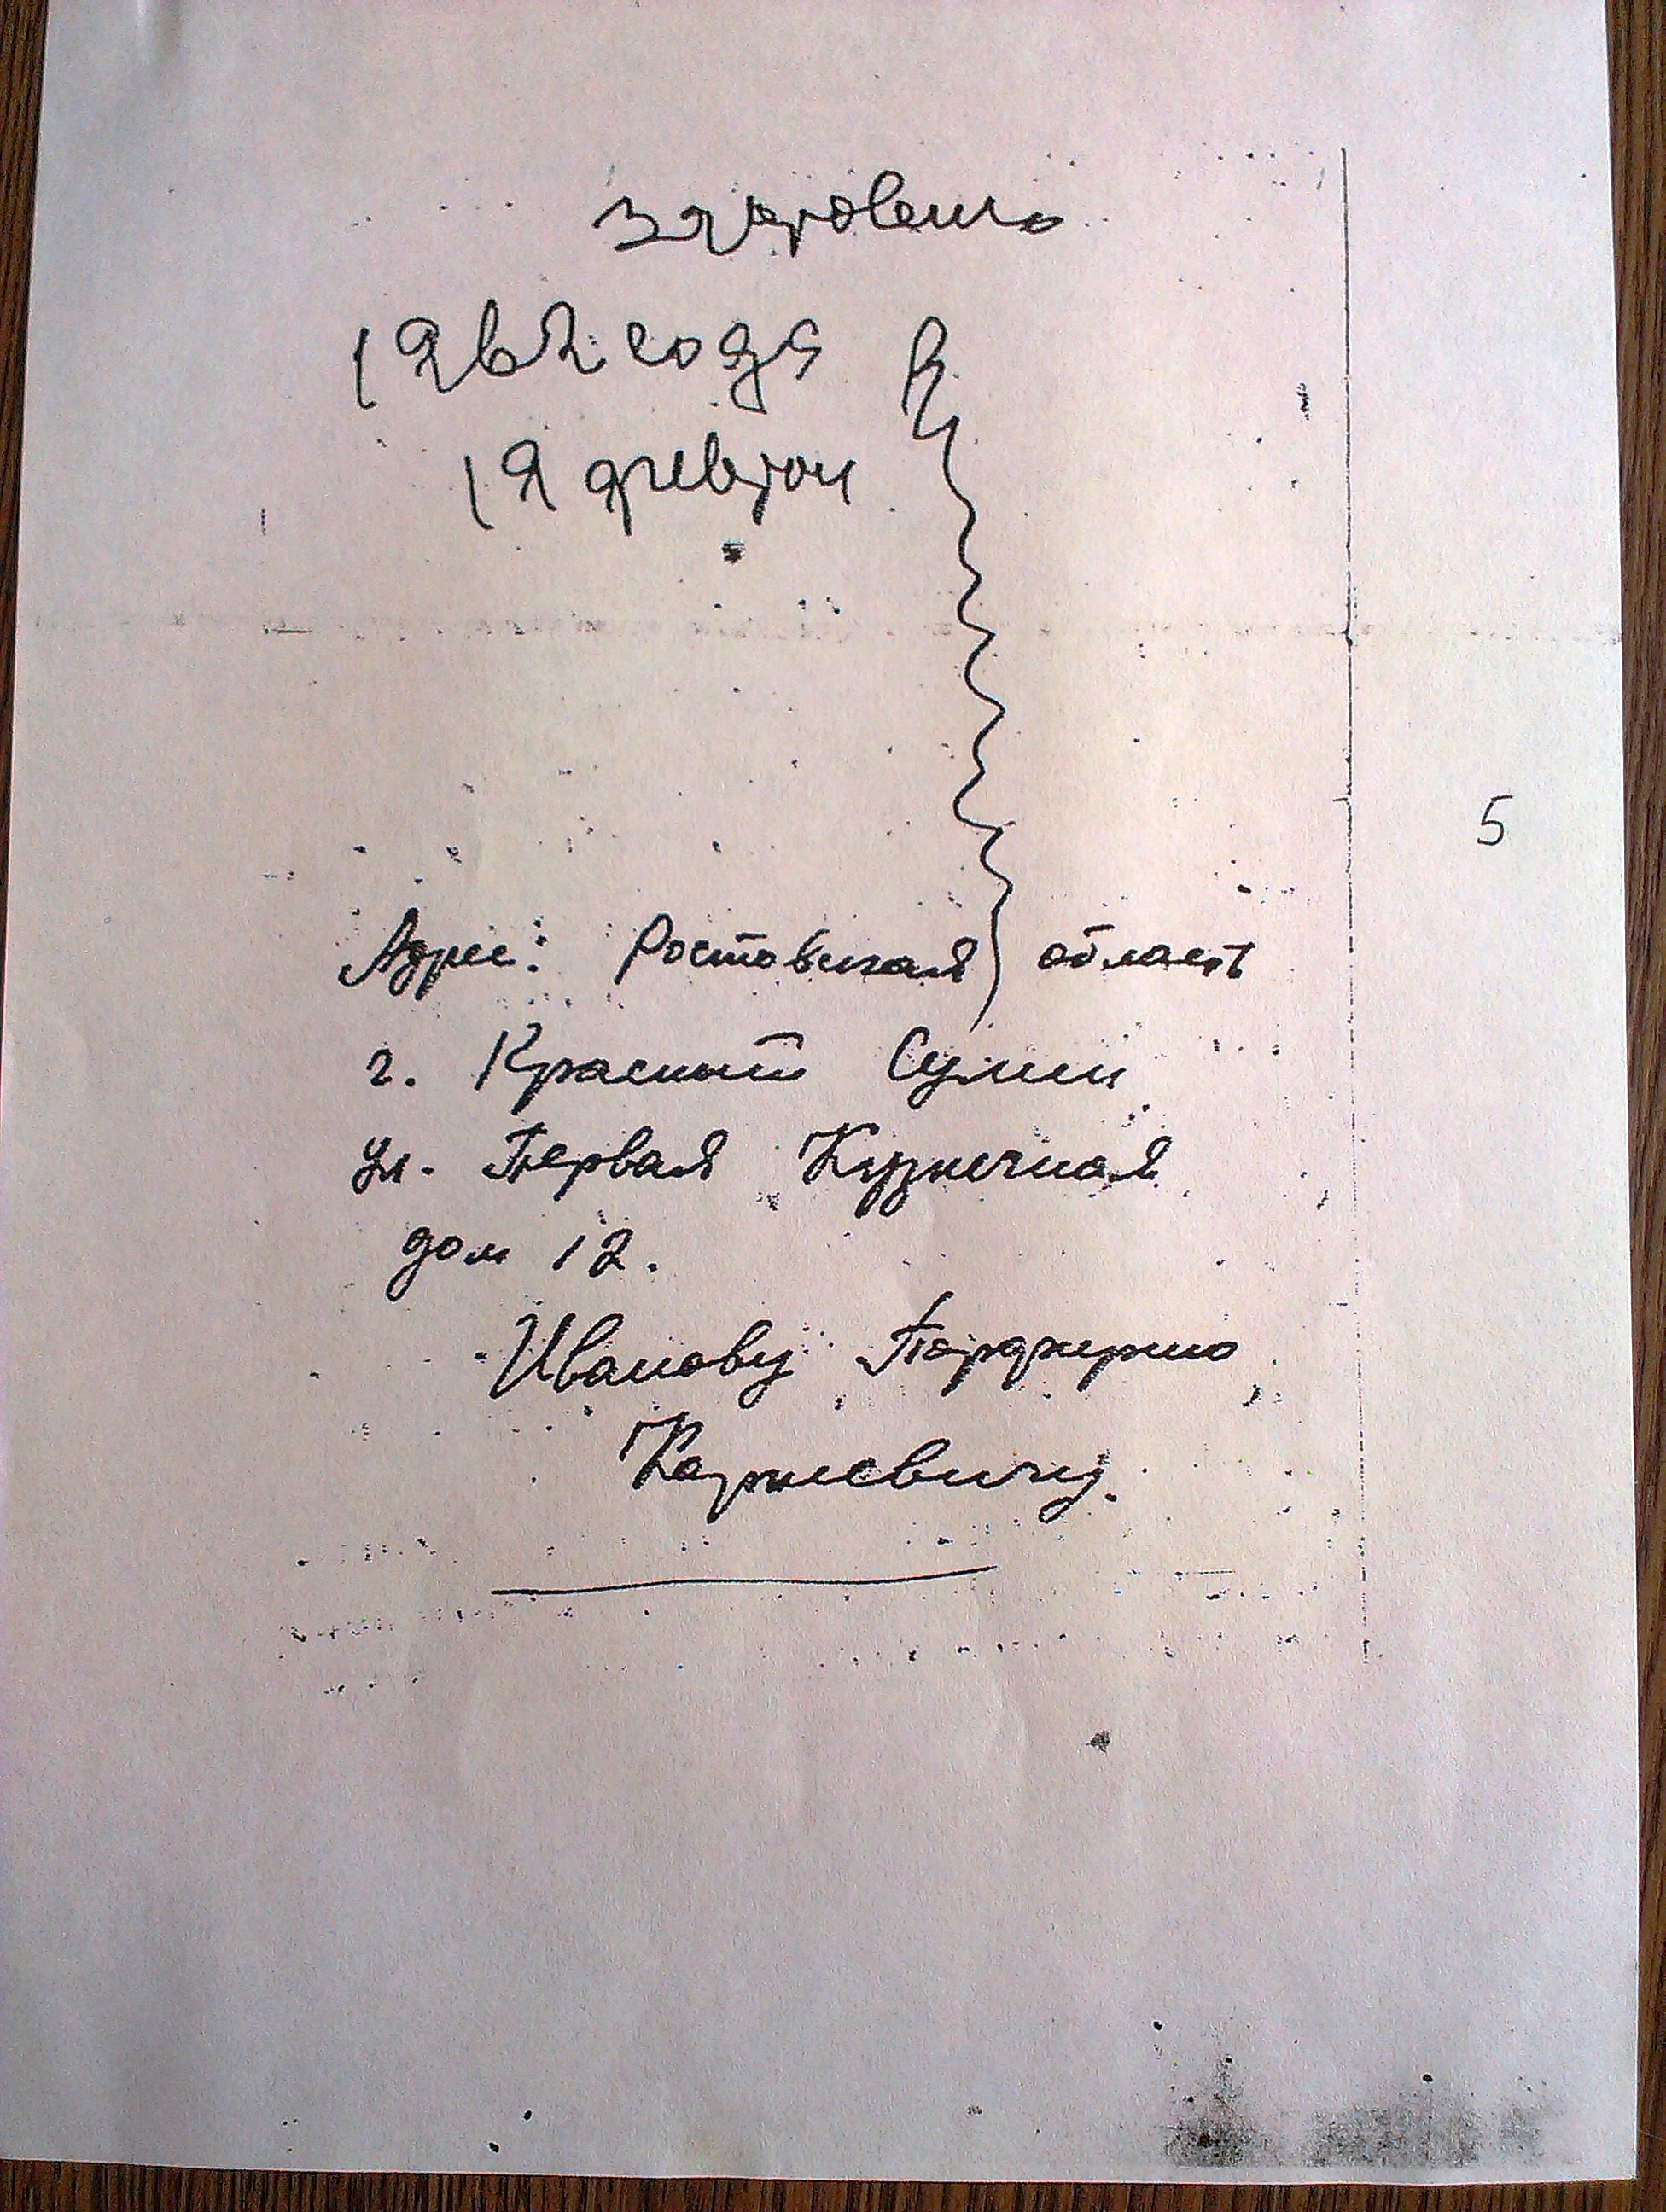 1962 года
19 феврам
Адрес: Ростовская область
г. Красный Сулин
ул. Первая Кузнечная
дом 12.
Иванову Порфирию
Корнеевичу.
5